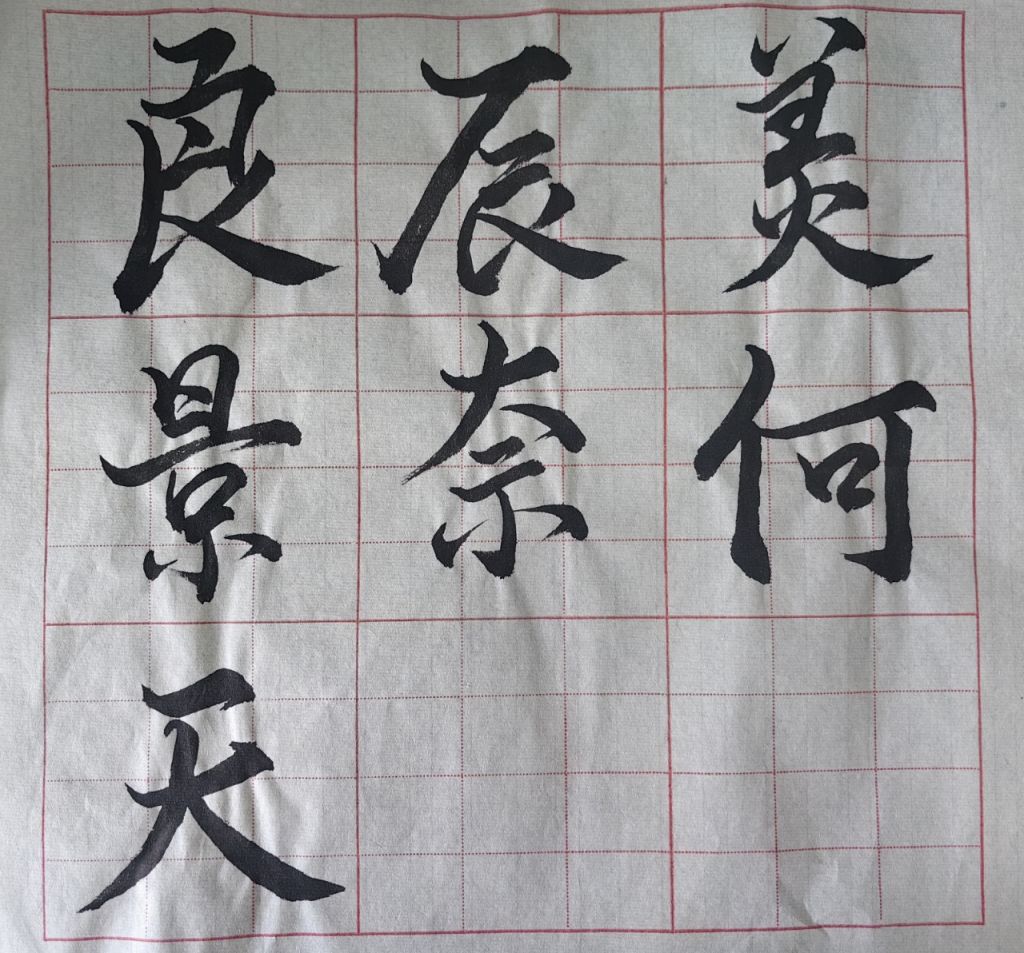 良辰美
景奈何
天